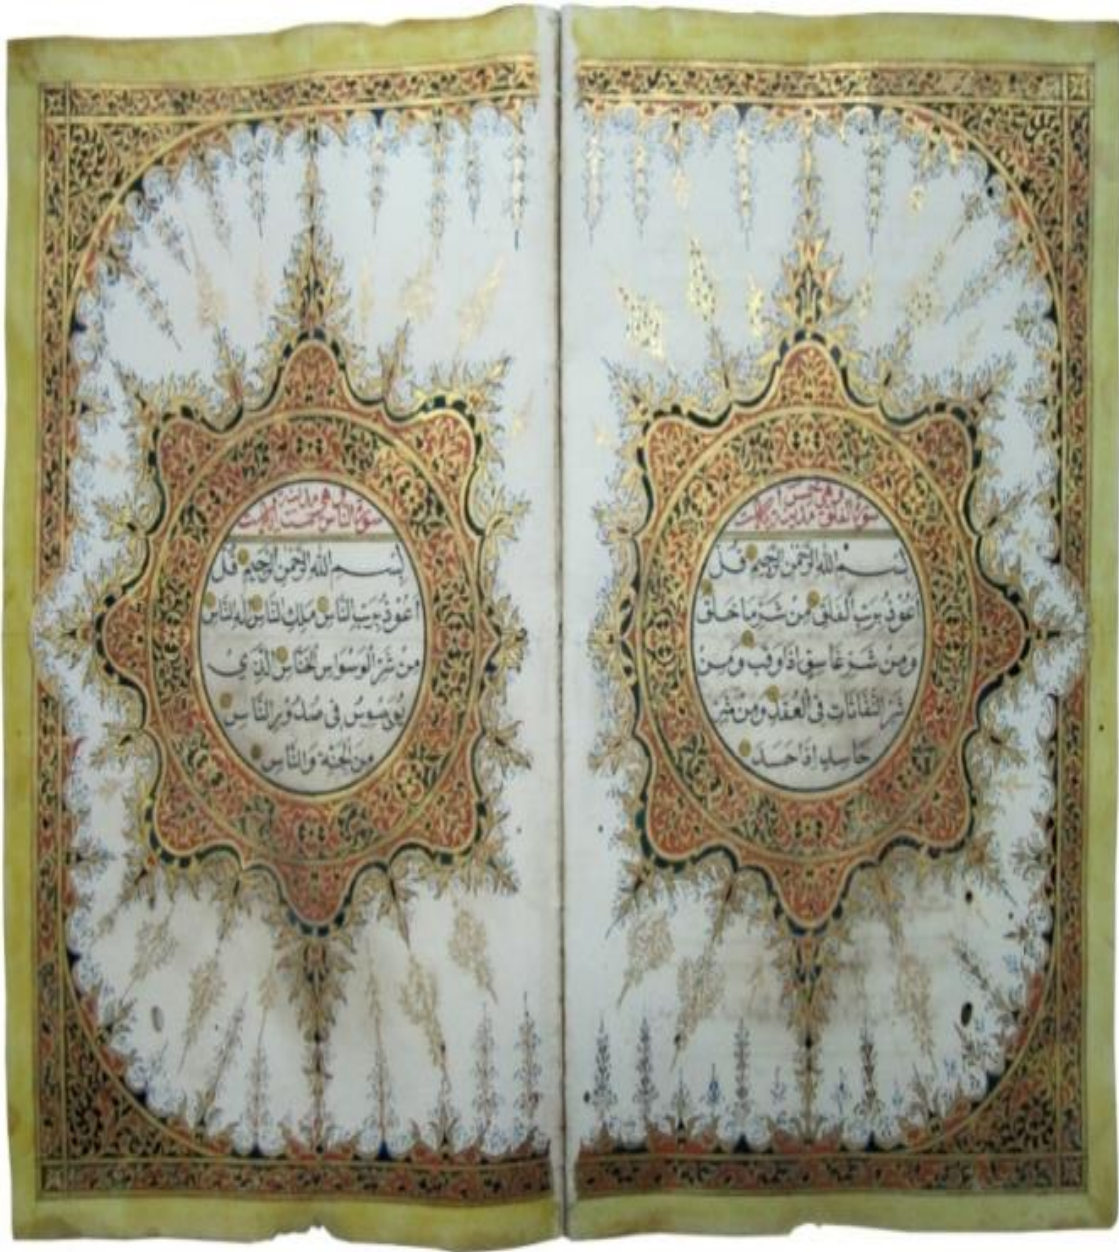 سورة الفلق وهي خمس
مدنية آيات
بسم الله الرحمن الرحيم قل
اعوذ برب الفلق من شر ما خلق
ومن شر غاسق اذا وقب ومن
شر النفاثات فى العقد ومن شر
حاسد اذا حسد
سورة الناس ست آيات
وهي مدنية
بسم الله الرحمن الرحيم قل
اعوذ برب الناس ملك الناس اله الناس
من شر الوسواس الخناس الذي
يوسوس فى صدور الناس
من الجنة والناس